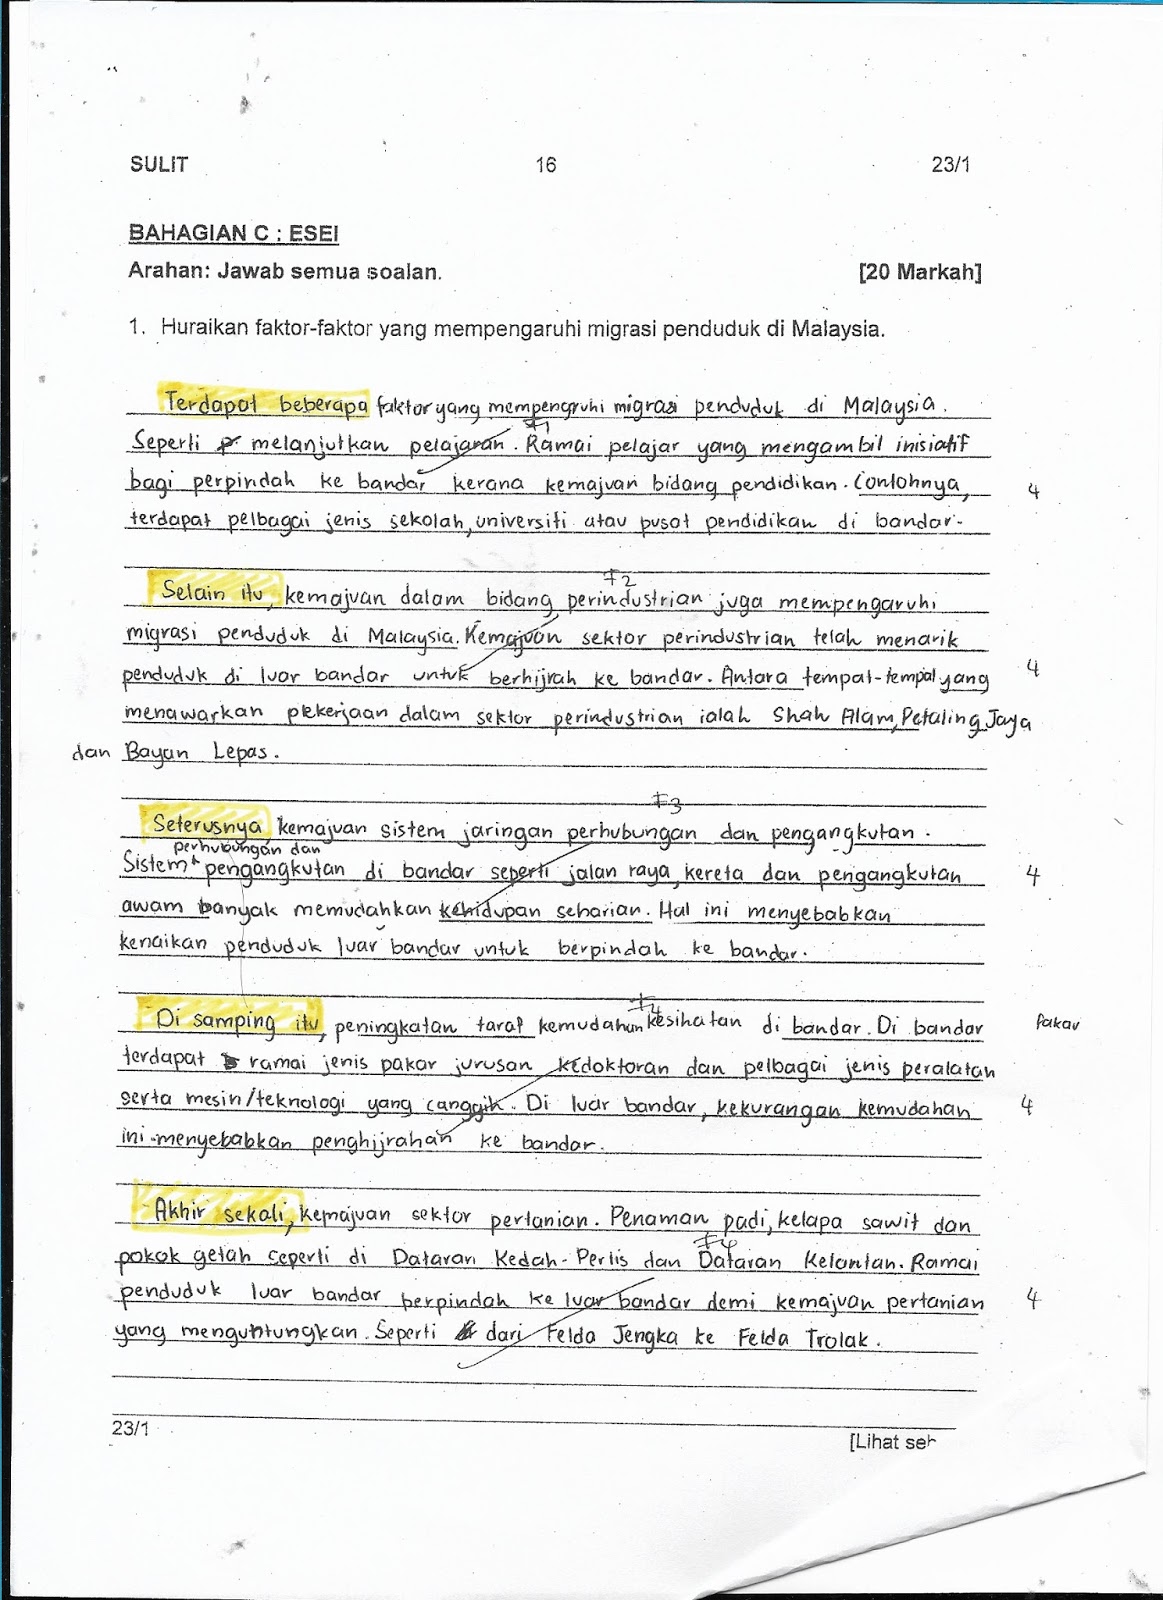 SULIT 16 23/1
BAHAGIAN C : ESEI
Arahan: Jawab semua soalan. [20 Markah]
1. Huraikan faktor-faktor yang mempengaruhi migrasi penduduk di Malaysia.
Terdapat beberapa faktor yang mempengruhi migrasi penduduk di Malaysia.
F1
Seperti melanjutkan pelajaran. Ramai pelajar yang mengambil inisiatif
bagi perpindah ke bandar kerana kemajuan bidang pendidikan. Contohnya, 4
terdapat pelbagai jenis sekolah, universiti atau pusat pendidikan di bandar.
F2
Selain itu, kemajuan dalam bidang perindustrian juga mempengaruhi
migrasi penduduk di Malaysia. Kemajuan sektor perindustrian telah menarik
penduduk di luar bandar untuk berhijrah ke bandar. Antara tempat-tempat yang 4
menawarkan pekerjaan dalam sektor perindustrian ialah Shah Alam, Petaling Jaya
dan Bayan Lepas.
F3
Seterusnya, kemajuan sistem jaringan perhubungan dan pengangkutan.
perhubungan dan
Sistem pengangkutan di bandar seperti jalan raya, kereta dan pengangkutan 4
awam banyak memudahkan kehidupan seharian. Hal ini menyebabkan
kenaikan penduduk luar bandar untuk berpindah ke bandar.
F4
Di samping itu, peningkatan taraf kemudahan kesihatan di bandar. Di bandar pakar
terdapat ramai jenis pakar jurusan kedoktoran dan pelbagai jenis peralatan
serta mesin/teknologi yang canggih. Di luar bandar, kekurangan kemudahan 4
ini menyebabkan penghijrahan ke bandar.
Akhir sekali, kemajuan sektor pertanian. Penaman padi, kelapa sawit dan
F4
pokok getah seperti di Dataran Kedah-Perlis dan Dataran Kelantan. Ramai
penduduk luar bandar berpindah ke luar bandar demi kemajuan pertanian 4
yang menguntungkan. Seperti dari Felda Jengka ke Felda Trolak.
23/1
[Lihat seb